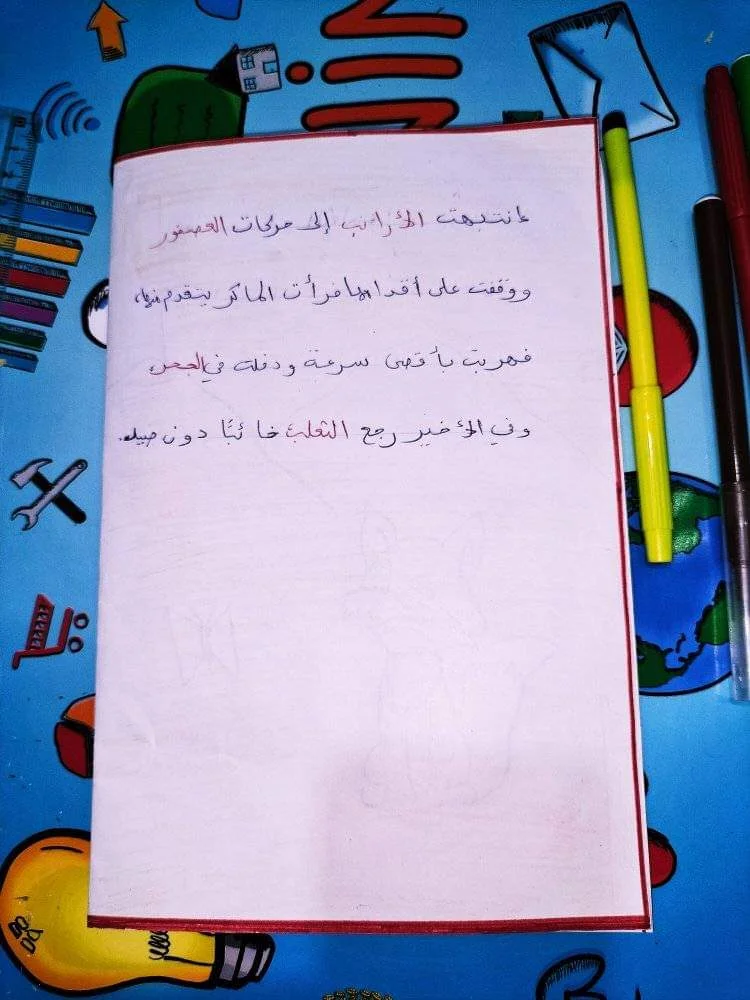 انتبهت الأرانب إلى حركات العصفور
ووقفت على أقدامها فرأت الماكر يتقدم نحوها
فهربت بأقصى سرعة ودخلت في الجحر
وفي الأخير رجع الثعلب خائبًا دون صيد.